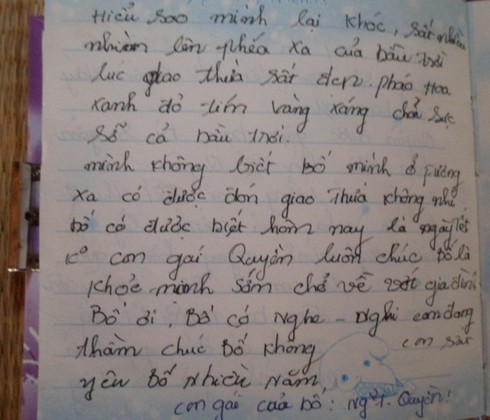 Hiểu sao mình lại khóc, sắt nhiều
nhiàm lên phéa xa của bầu trời
luc giao thừa sắt đẹp pháo Hoa
xanh đỏ tím vàng xáng chới sực
sỡ cả bầu trời.
mình không biết bố mình ở phương
xa có được đón giao thừa không nhỉ
bố có được biết hôm nay là ngày tết
ko con gái Quyền luôn chúc bố là
Khỏe mình sớm chở về với gia đình
Bố ơi, Bố có Nghe - Nghi con đang
thầm chúc Bố không con sát
yêu Bố nhiều năm
con gái của bố : Ng T. Quyền!